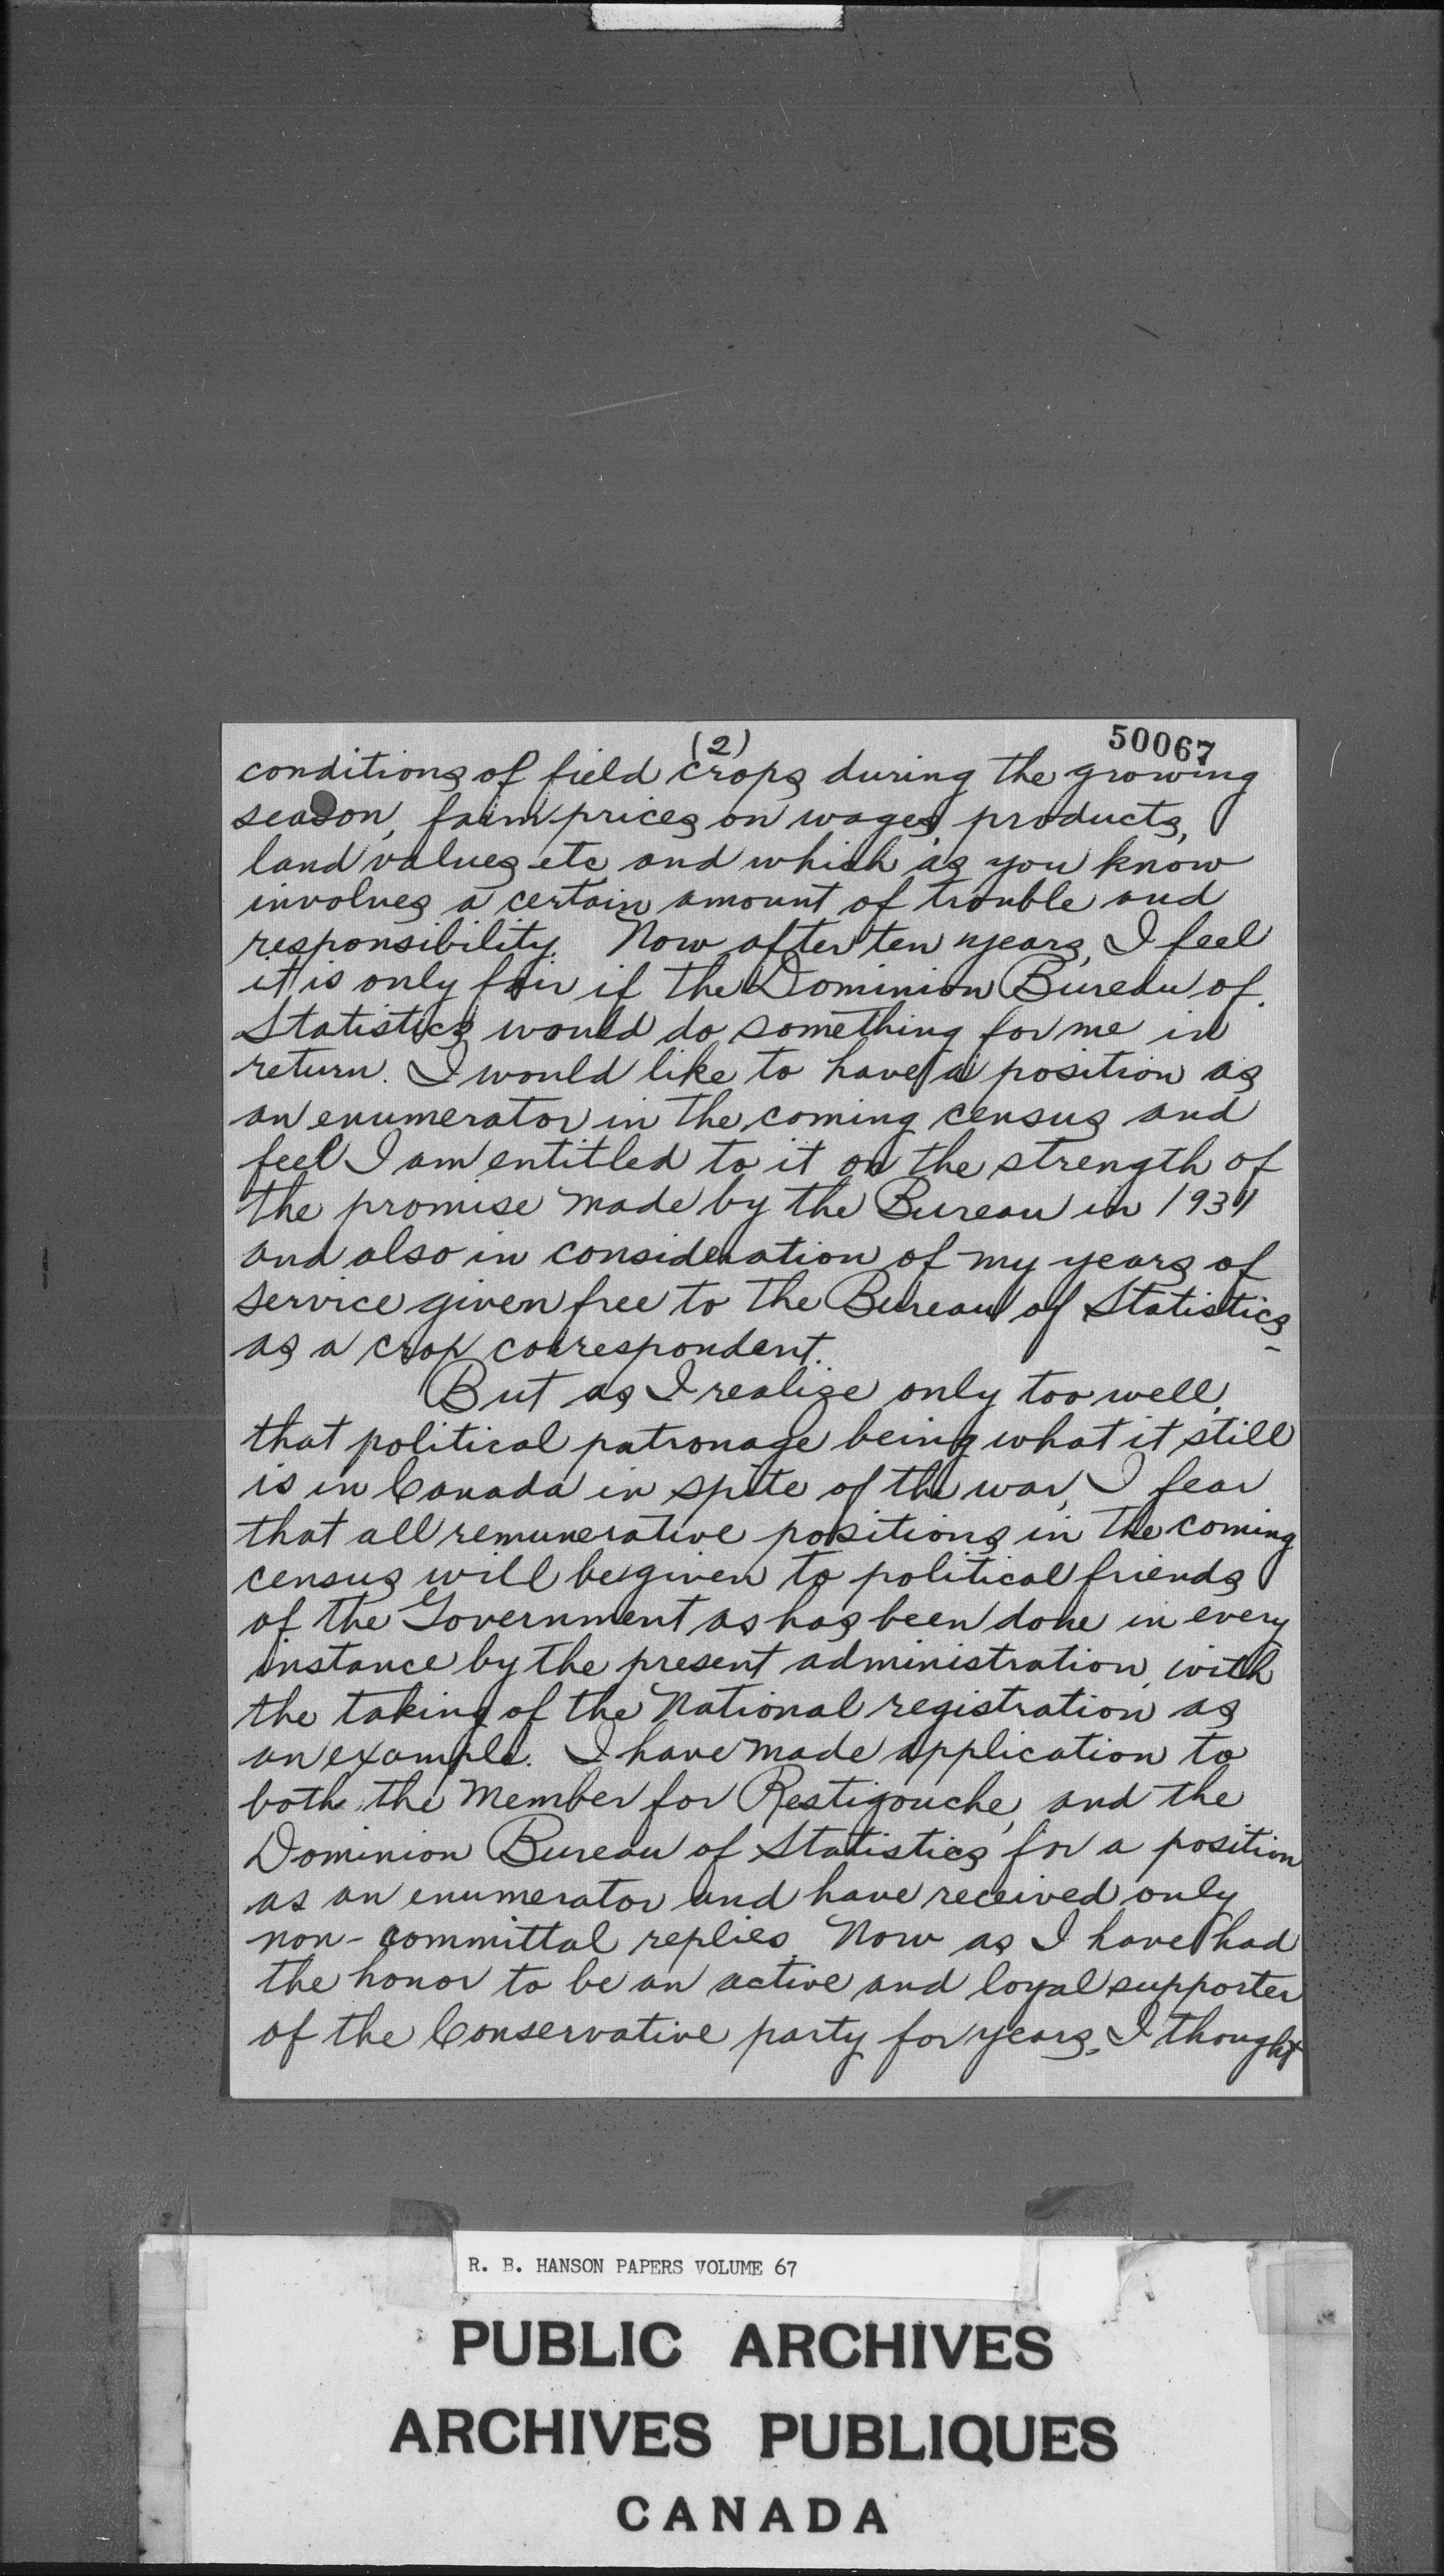 (2)
50067
conditions of field crops during the growing
season, farm prices on wages, products,
land values etc and which as you know
involves a certain amount of trouble and
responsibility. Now after ten years, I feel
it is only fair if the Dominion Bureau of
Statistics would do something for me in
return. I would like to have a position as
an enumerator in the coming census and
feel I am entitled to it on the strength of
the promise made by the Bureau in 1931
and also in consideration of my years of
service given free to the Bureau of Statistics
as a crop correspondent.
But as I realize only too well,
that political patronage being what it still
is in Canada in spite of the war, I fear
that all remunerative positions in the coming
census will be given to political friends
of the Government as has been done in every
instance by the present administration, with
the taking of the National registration as
an example. I have made application to
both the Member for Restigouche, and the
Dominion Bureau of Statistics for a position
as an enumerator and have received only
non-committal replies. Now as I have had
the honor to be an active and loyal supporter
of the Conservative party for years, I thought
R. B. HANSON PAPERS VOLUME 67
PUBLIC ARCHIVES
ARCHIVES PUBLIQUES
CANADA